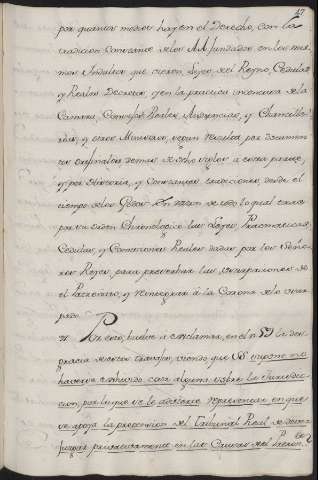 47
por quantos modos hay en el Derecho, con la
tradicion constante de los AA. fundados en los mis-
mos Indultos que citan, Leyes del Reyno, Cedulas
y Reales Decretos, y en la practica inconcusa de la
Camara, Consejos Reales, Audiencias, y Chancille-
rias, y otros Ministros, segun resulta por Documen-
tos originales de mas de ocho siglos a esta parte,
y por Historia, y constantes tradiciones, desde el
tiempo de los Godos. En razon de todo lo qual
por su orden Chronologico las Leyes, Pracmaticas,
Cedulas, y Comisiones Reales dadas por los Seño-
res Reyes, para precaver las usurpaciones de
el Patronato, y reintegrar á la Corona de lo usur-
pado.
71. Por esto, buelve a exclamar, en el n. 59 la des-
gracia de estos trabajos, viendo que SS. supone no
haverse estimado cosa alguna sobre la Jurisdic-
cion, por lo que se le advierte representar en que
se apoya la pretension del Tribunal Real de
juzgar privativamente en las Causas del Patron.